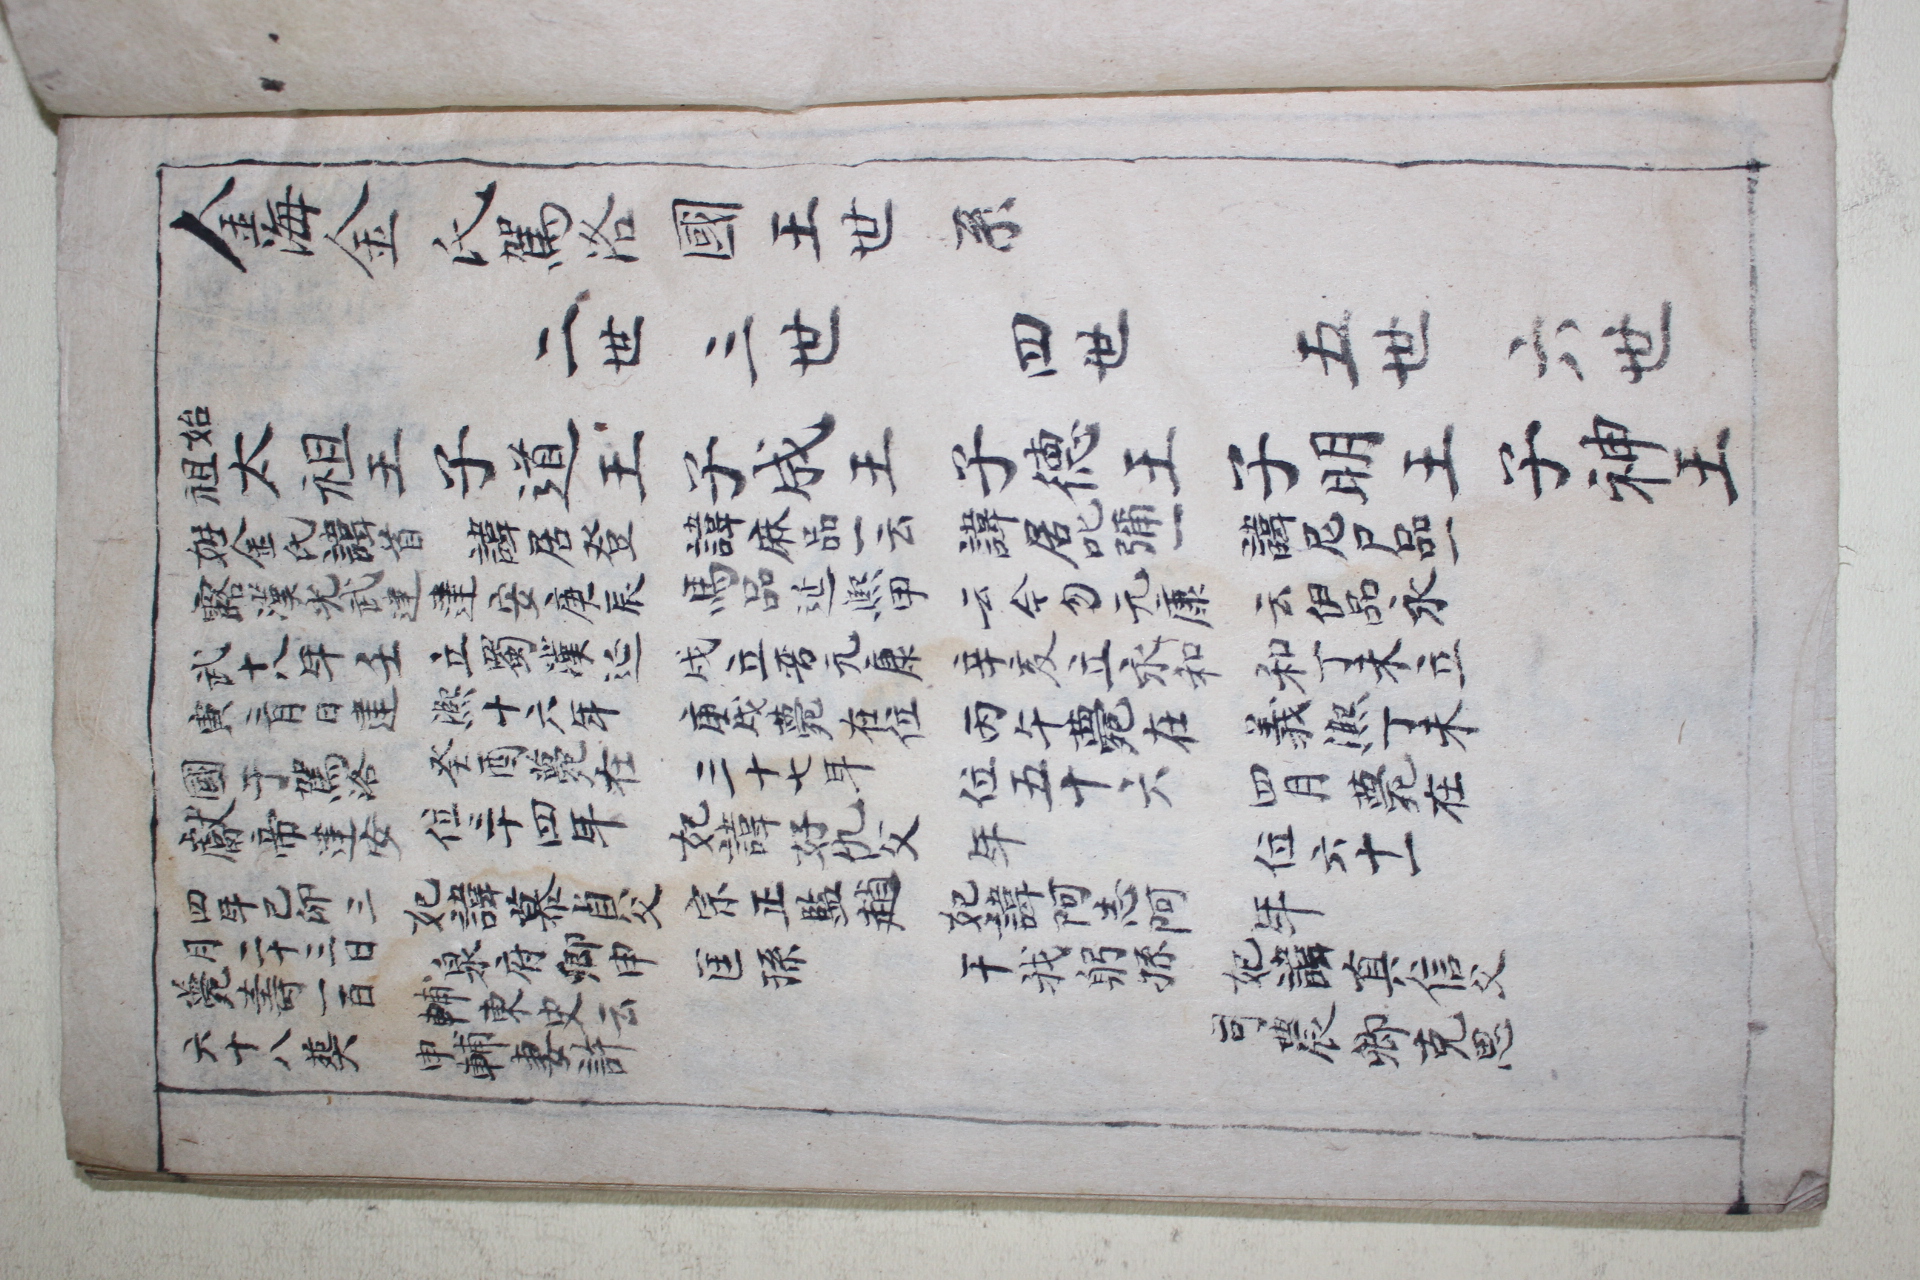 金海金氏駕洛國王世系
二世 三世 四世 五世 六世
始祖太祖王 子道王 子成王 子德王 子明王 子神王
姓金氏諱首
露漢光武建
武十八年壬
寅三月日建
國于駕洛
獻帝建安
四年己卯三
月二十三日
薨壽一百
六十八葬
諱居登
建安庚辰
立蜀漢延
熙十六年
癸酉薨在
位三十四年
妃諱慕貞父
泉府卿申
輔東史云
申輔妻許
諱麻品一云
馬品延熙甲
戌立晉元康
庚戌薨在位
三十七年
妃諱好仇父
宗正監趙
匡孫
諱居叱彌一
云今勿元康
辛亥立永和
丙午薨在
位五十六
年
妃諱阿志阿
干我躬孫
諱尼尸品一
云伊品永
和丁未立
義熙丁未
四月薨在
位六十一
年
妃諱真信父
司農卿克思